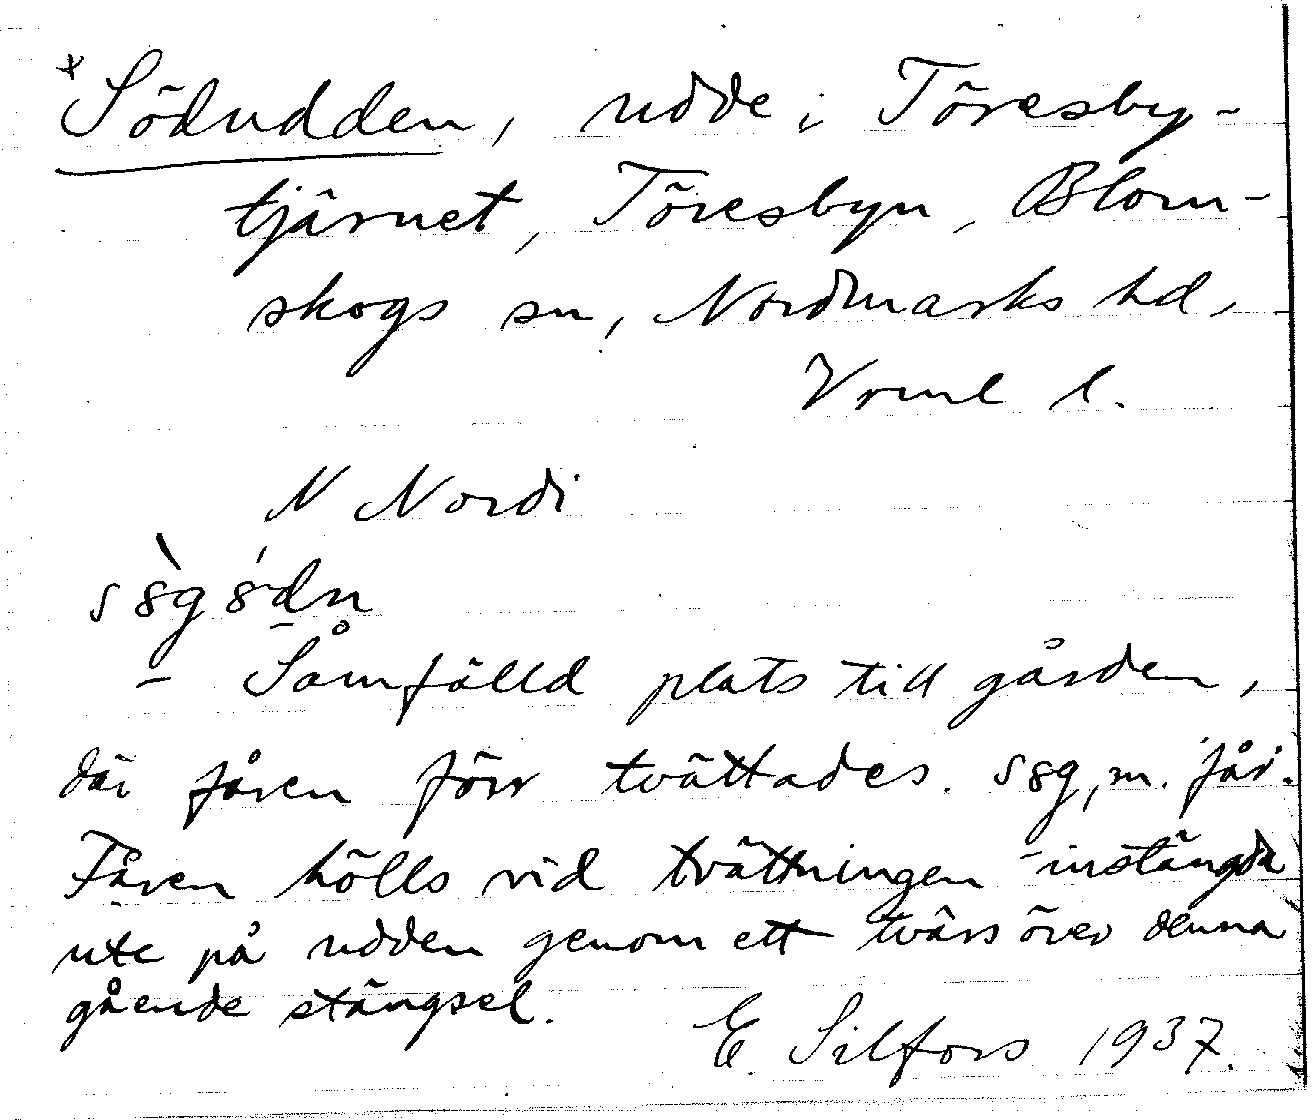 *Södudden, udde i Töresby-
tjärnet, Töresbyn, Blom-
skogs sn, Nordmarks hd,
Vrml l.
N Nordi
- Samfälld plats till gården,
där fåren förr tvättades. ssg, m. får.
Fåren hölls vid tvättningen instängda
ute på udden genom ett tvärs över denna
gående stängsel.
E Silfors 1937.